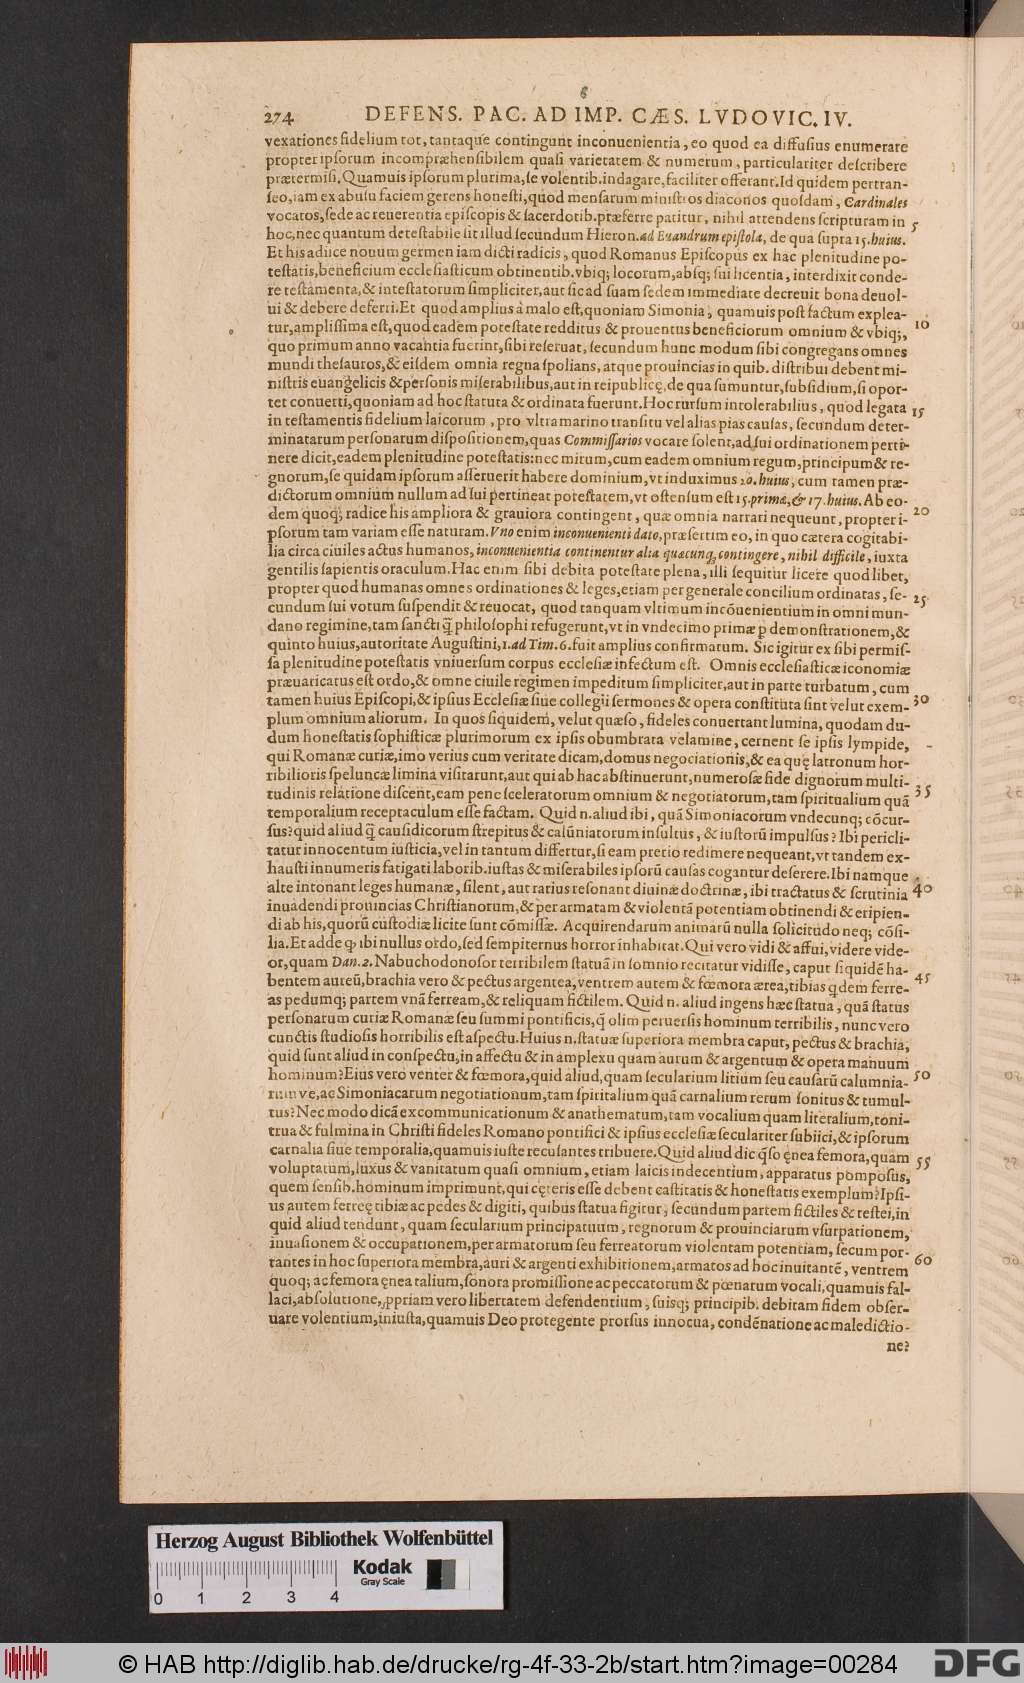 274 DEFENS. PAC. AD IMP. CÆS. LVDOVIC. IV.
vexationes fidelium tot, tantaque contingunt inconuenientia, eo quod ea diffusius enumerare
propter ipsorum incompræhensibilem quasi varietatem & numerum, particulariter describere
prætermisi. Quamuis ipsorum plurima, se volentib. indagare, faciliter offerant. Id quidem pertran-
seo, iam ex abusu faciem gerens honesti, quod mensarum ministros diaconos quosdam, Cardinales
vocatos, sede ac reuerentia episcopis & sacerdotib. præferre patitur, nihil attendens scripturam in 5
hoc, nec quantum detestabile sit illud secundum Hieron. ad Euandrum epistola, de qua supra 15. huius.
Et his adiice nouum germen iam dicti radicis, quod Romanus Episcopus ex hac plenitudine po-
testatis, beneficium ecclesiasticum obtinentib. vbiq; locorum, absq; sui licentia, interdixit conde-
re testamenta, & intestatorum simpliciter, aut sic ad suam sedem immediate decreuit bona deuol-
ui & debere deferri. Et quod amplius à malo est, quoniam Simonia, quamuis post factum explea-
tur, amplissima est, quod eadem potestate redditus & prouentus beneficiorum omnium & vbiq;, 10
quo primum anno vacantia fuerint, sibi reseruat, secundum hunc modum sibi congregans omnes
mundi thesauros, & eisdem omnia regna spolians, atque prouincias in quib. distribui debent mi-
nistris euangelicis & personis miserabilibus, aut in reipublicę, de qua sumuntur, subsidium, si opor-
tet conuerti, quoniam ad hoc statuta & ordinata fuerunt. Hoc rursum intolerabilius, quod legata 15
in testamentis fidelium laicorum, pro vltramarino transitu vel alias pias causas, secundum deter-
minatarum personarum dispositionem, quas Commissarios vocare solent, ad sui ordinationem perti-
nere dicit, eadem plenitudine potestatis: nec mirum, cum eadem omnium regum, principum & re-
gnorum, se quidam ipsorum asseruerit habere dominium, vt induximus 20. huius, cum tamen præ-
dictorum omnium nullum ad sui pertineat potestatem, vt ostensum est 15. primæ, & 17. huius. Ab eo-
dem quoq; radice his ampliora & grauiora contingent, quæ omnia narrari nequeunt, propter i- 20
psorum tam variam esse naturam. Vno enim inconuenienti dato, præsertim eo, in quo cætera cogitabi-
lia circa ciuiles actus humanos, inconuenientia continentur alia quæcunq, contingere, nihil difficile, iuxta
gentilis sapientis oraculum. Hac enim sibi debita potestate plena, illi sequitur licere quod libet,
propter quod humanas omnes ordinationes & leges, etiam per generale concilium ordinatas, se-
cundum sui votum suspendit & reuocat, quod tanquam vltimum incōuenientium in omni mun- 25
dano regimine, tam sancti q̃ philosophi refugerunt, vt in vndecimo primæ ꝑ demonstrationem, &
quinto huius, autoritate Augustini, 1. ad Tim. 6. fuit amplius confirmatum. Sic igitur ex sibi permis-
sa plenitudine potestatis vniuersum corpus ecclesiæ infectum est. Omnis ecclesiasticæ iconomiæ
præuaricatus est ordo, & omne ciuile regimen impeditum simpliciter, aut in parte turbatum, cum
tamen huius Episcopi, & ipsius Ecclesiæ siue collegii sermones & opera constituta sint velut exem- 30
plum omnium aliorum. In quos siquidem, velut quæso, fideles conuertant lumina, quodam du-
dum honestatis sophisticæ plurimorum ex ipsis obumbrata velamine, cernent se ipsis lympide,
qui Romanæ curiæ, imo verius cum veritate dicam, domus negociationis, & ea quę latronum hor-
ribilioris speluncæ limina visitarunt, aut qui ab hac abstinuerunt, numerosæ fide dignorum multi-
tudinis relatione discent, eam pene sceleratorum omnium & negotiatorum, tam spiritualium quã 35
temporalium receptaculum esse factam. Quid n. aliud ibi, quã Simoniacorum vndecunq; cōcur-
sus? quid aliud q̃ causidicorum strepitus & calūniatorum insultus, & iustorū impulsus? Ibi pericli-
tatur innocentum iusticia, vel in tantum differtur, si eam pretio redimere nequeant, vt tandem ex-
hausti innumeris fatigati laborib. iustas & miserabiles ipsorū causas cogantur deserere. Ibi namque
alte intonant leges humanæ, silent, aut rarius resonant diuinæ doctrinæ, ibi tractatus & scrutinia 40
inuadendi prouincias Christianorum, & per armatam & violentā potentiam obtinendi & eripien-
di ab his, quorū custodiæ licite sunt cōmissæ. Acquirendarum animarū nulla solicitudo neq; cōsi-
lia. Et adde ꝙ ibi nullus ordo, sed sempiternus horror inhabitat. Qui vero vidi & affui, videre vide-
or, quam Dan. 2. Nabuchodonosor terribilem statuā in somnio recitatur vidisse, caput siquidē ha-
bentem aureū, brachia vero & pectus argentea, ventrem autem & fœmora ærea, tibias q̃dem ferre- 45
as pedumq; partem vnā ferream, & reliquam fictilem. Quid n. aliud ingens hæc statua, quā status
personarum curiæ Romanæ seu summi pontificis, q̃ olim peruersis hominum terribilis, nunc vero
cunctis studiosis horribilis est aspectu. Huius n. statuæ superiora membra caput, pectus & brachia,
quid sunt aliud in conspectu, in affectu & in amplexu quam aurum & argentum & opera manuum
hominum? Eius vero venter & fœmora, quid aliud, quam secularium litium seu causarū calumnia- 50
rumve, ac Simoniacarum negotiationum, tam spiritalium quā carnalium rerum sonitus & tumul-
tus? Nec modo dicā excommunicationum & anathematum, tam vocalium quam literalium, toni-
trua & fulmina in Christi fideles Romano pontifici & ipsius ecclesiæ seculariter subiici, & ipsorum
carnalia siue temporalia, quamuis iuste recusantes tribuere. Quid aliud dic q̃so ęnea femora, quam
voluptatum, luxus & vanitatum quasi omnium, etiam laicis indecentium, apparatus pomposus, 55
quem sensib. hominum imprimunt, qui cęteris esse debent castitatis & honestatis exemplum? Ipsi-
us autem ferreę tibiæ ac pedes & digiti, quibus statua figitur, secundum partem fictiles & testei, in
quid aliud tendunt, quam secularium principatuum, regnorum & prouinciarum vsurpationem,
inuasionem & occupationem, per armatorum seu ferreatorum violentam potentiam, secum por-
tantes in hoc superiora membra, auri & argenti exhibitionem, armatos ad hoc inuitantē, ventrem 60
quoq; ac femora ęnea talium, sonora promissione ac peccatorum & pœnarum vocali, quamuis fal-
laci, absolutione, ꝓpriam vero libertatem defendentium, suisq; principib. debitam fidem obser-
uare volentium, iniusta, quamuis Deo protegente prorsus innocua, condēnatione ac maledictio-
ne?
Herzog August Bibliothek Wolfenbüttel
Kodak
Gray Scale
0 1 2 3 4
© HAB http://diglib.hab.de/drucke/rg-4f-33-2b/start.htm?image=00284
DFG